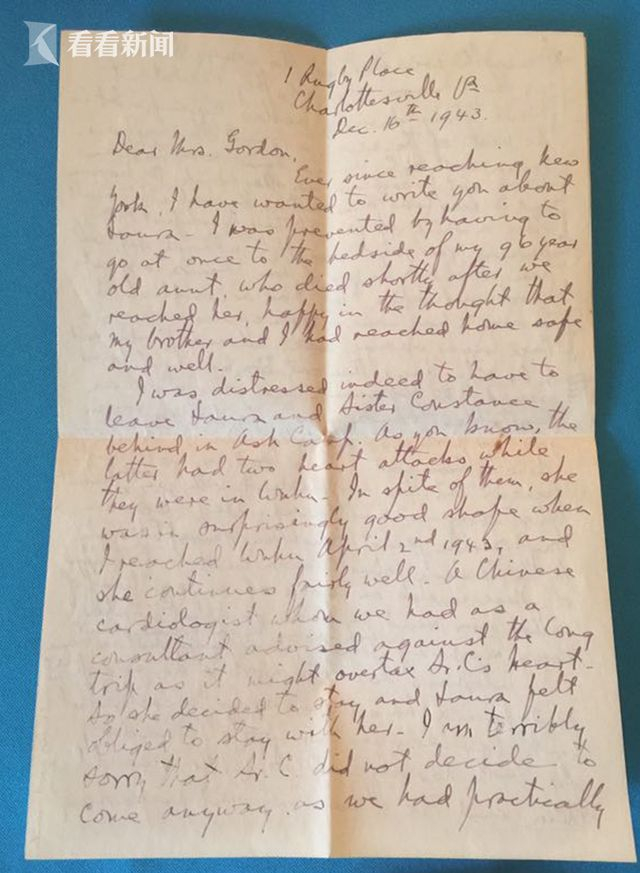 看看新闻
1 Rugby Place
Charlottesville Va
Dec. 16th 1943.
Dear Mrs. Gordon,
Ever since reaching New
York, I have wanted to write you about
Laura - I was prevented by having to
go at once to the bedside of my 96 year
old aunt, who died shortly after we
reached her, happy in the thought that
my brother and I had reached home safe
and well.
I was distressed indeed to have to
leave Laura and Sister Constance
behind in Ash Camp. As you know, the
latter had two heart attacks while
they were in Wuhu - In spite of them, she
was in surprisingly good shape when
I reached Wuhu April 2nd 1943, and
she continues fairly well. A Chinese
cardiologist whom we had as a
consultant advised against the long
trip as it might overtax Sr. C's heart -
So she decided to stay and Laura felt
obliged to stay with her - I am terribly
sorry that Sr. C. did not decide to
come anyway as we had practically